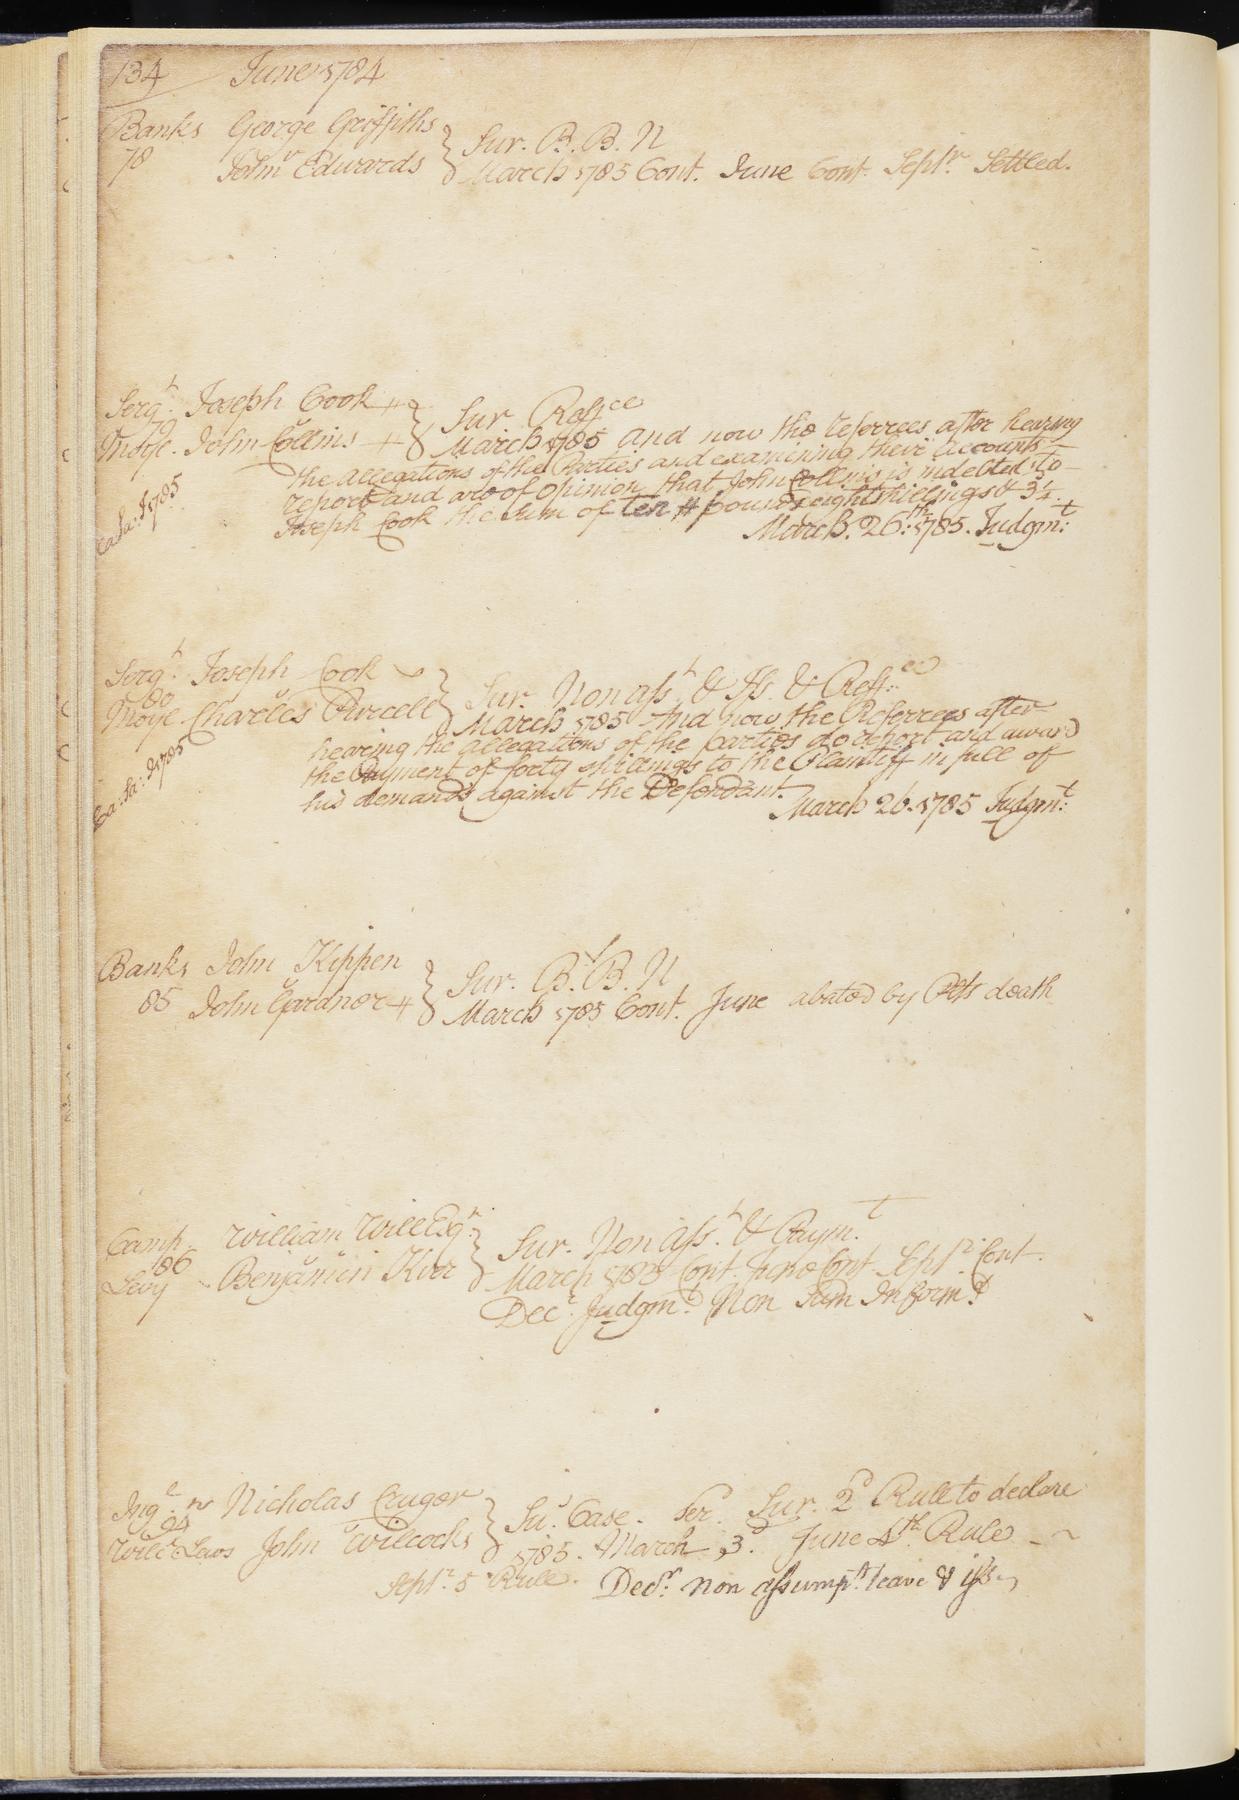 134 June 1784
Banks George Griffiths
78 v
John Edwards } Sur. B. B. N
March 1785 Cont. June Cont. Septr. Settled.
Sergt. Joseph Cook
79 v
Moye. John Collins } Sur Reffce
March 1785 and now the referrees after hearing
the allegations of the Parties and examining their accounts
report and are of opinion that John Collins is indebted to
Joseph Cook the Sum of ten pounds eight shillings & 3½.
March. 26th: 1785. Judgmt:
Ca Sa: J 1785
Sergt. Joseph Cook
80 v
Moye. Charles Purcell } Sur. Non asst. & Iss. & Reff.ce
March 1785 And now the Referrees after
hearing the allegations of the parties do report and award
the Payment of forty shillings to the Plantiff in full of
his demands against the Defendant.
March 26. 1785 Judgmt:
Ca: Sa: J 1785
Banks John Kippen
85 v
John Gardner } Sur. B. B. N
March 1785 Cont. June abated by Plts death
Camp. William Will Esqr.
186 v
Levy Benjamin Kerr } Sur. Non asst. & Paymt
March 1785 Cont. June Cont Septr. Cont.
Decr. Judgmt. Non Sum Informt.
Ing Nicholas Cruger
94 v
Wilc. & Lewis John Wilcocks } Su. Case. Ser. Sur. 2d Rule to declare
1785. March 3d. June 4th Rule
Septr. 5 Rule. Decr. non assumpt. leave & iss